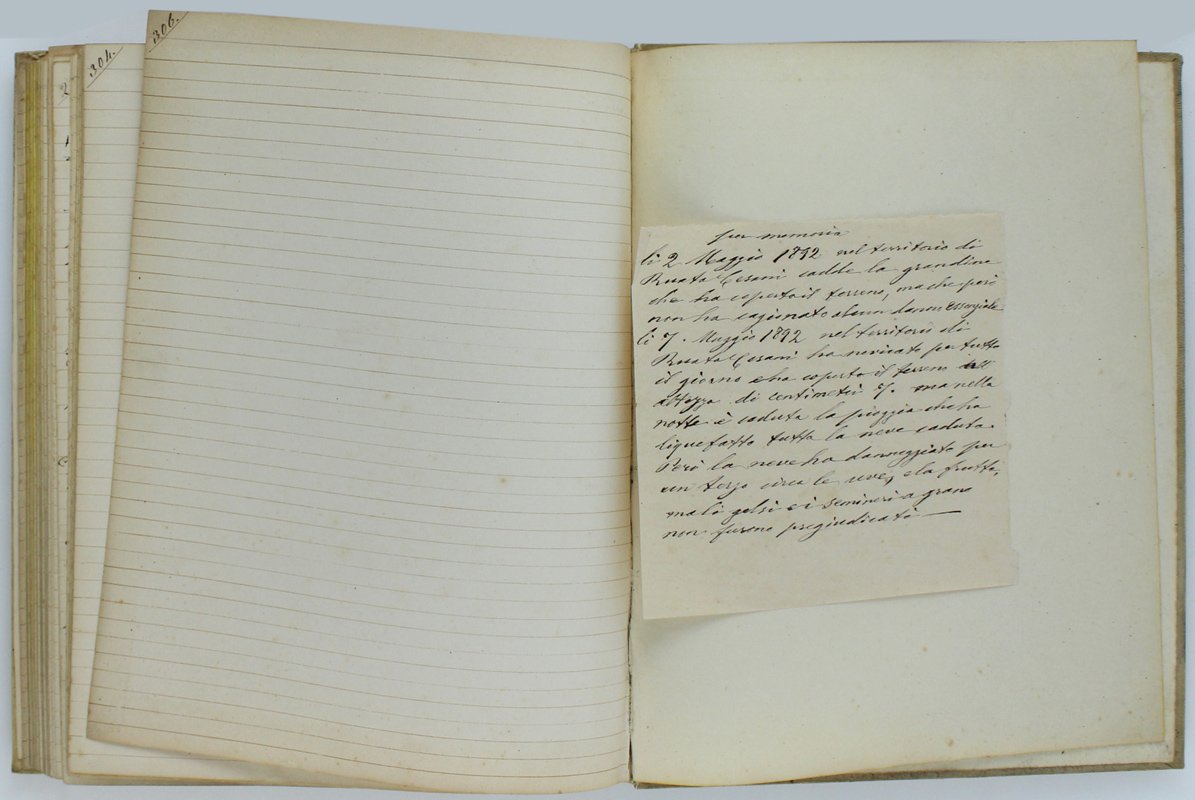 304.
306.
per memoria
li 2 Maggio 1892 nel territorio di
Ruata Cesani cadde la grandine
che ha coperto il terreno, ma che però
non ha cagionato alcun danno essenziale
li 7. Maggio 1892 nel territorio di
Ruata Cesani ha nevicato per tutto
il giorno e ha coperto il terreno all
altezza di centimetri 7. ma nella
notte è caduta la pioggia che ha
liquefatto tutta la neve caduta.
Però la neve ha danneggiato per
un terzo circa le uve, e la frutta,
ma li gelsi e i semineri a grano
non furono pregiudicati —